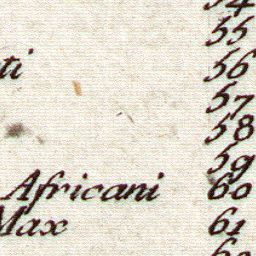 55
ti 56
57
58
59
Africani 60
Max 61